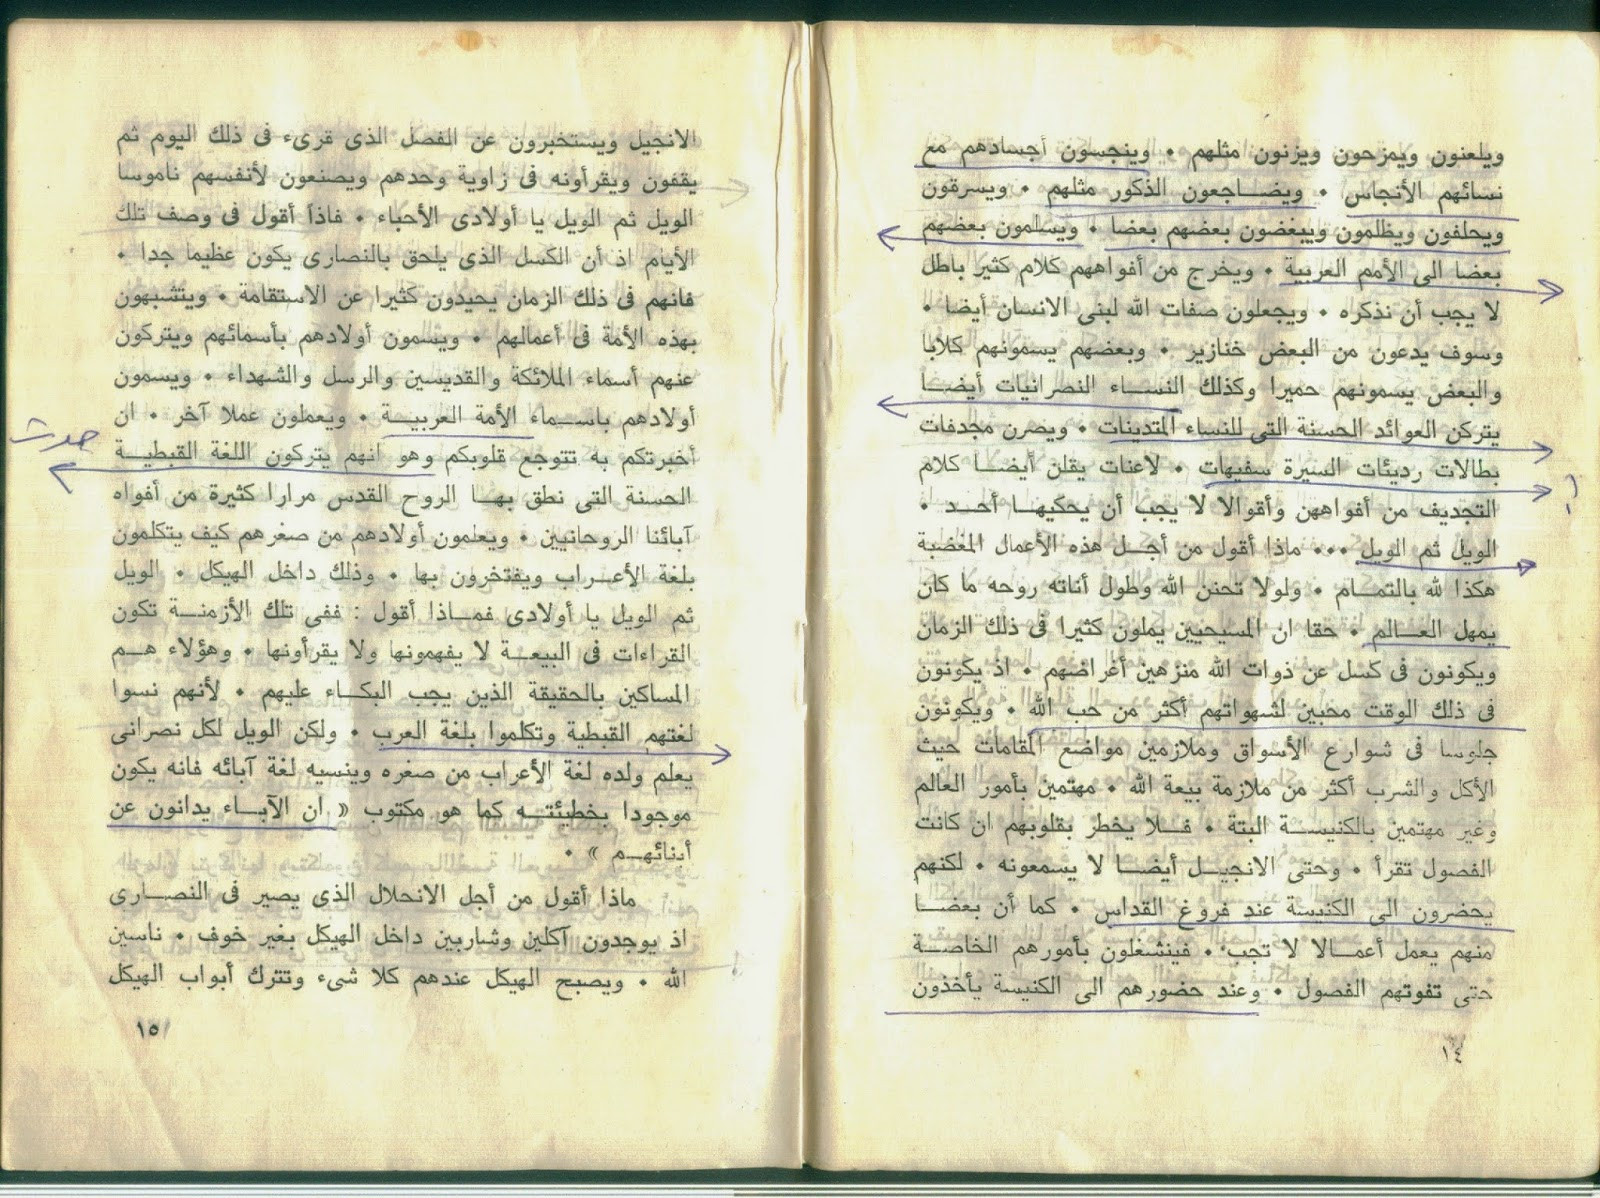 ويلعنون ويمزحون ويزنون مثلهم • وينجسون أجسادهم مع
نسائهم الأنجاس • ويضاجعون الذكور مثلهم • ويسرقون
ويحلفون ويظلمون ويبغضون بعضهم بعضا • ويسلمون بعضهم
بعضا الى الأمم العربية • ويخرج من أفواههم كلام كثير باطل
لا يجب أن نذكره • ويجعلون صفات الله لبنى الانسان أيضا •
وسوف يدعون من البعض خنازير • وبعضهم يسمونهم كلابا
والبعض يسمونهم حميرا وكذلك النساء النصرانيات أيضا
يتركن العوائد الحسنة التى للنساء المتدينات • ويصرن مجدفات
بطالات رديئات السيرة سفيهات • لاعنات يقلن أيضا كلام
التجديف من أفواههن وأقوالا لا يجب أن يحكيها أحد •
الويل ثم الويل ••• ماذا أقول من أجل هذه الأعمال المغضبة
هكذا لله بالتمام • ولولا تحنن الله وطول أناته روحه ما كان
يمهل العالم • حقا ان المسيحيين يملون كثيرا فى ذلك الزمان
ويكونون فى كسل عن ذوات الله منزهين أغراضهم • اذ يكونون
فى ذلك الوقت محبين لشهواتهم أكثر من حب الله • ويكونون
جلوسا فى شوارع الأسواق وملازمين مواضع المقامات حيث
الأكل والشرب أكثر من ملازمة بيعة الله • مهتمين بأمور العالم
وغير مهتمين بالكنيسة البتة • فلا يخطر بقلوبهم ان كانت
الفصول تقرأ • وحتى الانجيل أيضا لا يسمعونه • لكنهم
يحضرون الى الكنيسة عند فروغ القداس • كما أن بعضا
منهم يعمل أعمالا لا تجب • فينشغلون بأمورهم الخاصة
حتى تفوتهم الفصول • وعند حضورهم الى الكنيسة يأخذون
١٤
الانجيل ويستخبرون عن الفصل الذى قرىء فى ذلك اليوم ثم
يقفون ويقرأونه فى زاوية وحدهم ويصنعون لأنفسهم ناموسا
الويل ثم الويل يا أولادى الأحباء • فاذا أقول فى وصف تلك
الأيام اذ أن الكسل الذى يلحق بالنصارى يكون عظيما جدا •
فانهم فى ذلك الزمان يحيدون كثيرا عن الاستقامة • ويتشبهون
بهذه الأمة فى أعمالهم • ويسمون أولادهم بأسمائهم ويتركون
عنهم أسماء الملائكة والقديسين والرسل والشهداء • ويسمون
أولادهم باسماء الأمة العربية • ويعملون عملا آخر • ان
حدث
أخبرتكم به تتوجع قلوبكم وهو انهم يتركون اللغة القبطية
الحسنة التى نطق بها الروح القدس مرارا كثيرة من أفواه
آبائنا الروحانيين • ويعلمون أولادهم من صغرهم كيف يتكلمون
بلغة الأعراب ويفتخرون بها • وذلك داخل الهيكل • الويل
ثم الويل يا أولادى فماذا أقول : ففى تلك الأزمنة تكون
القراءات فى البيعة لا يفهمونها ولا يقرأونها • وهؤلاء هم
المساكين بالحقيقة الذين يجب البكاء عليهم • لأنهم نسوا
لغتهم القبطية وتكلموا بلغة العرب • ولكن الويل لكل نصرانى
يعلم ولده لغة الأعراب من صغره وينسيه لغة آبائه فانه يكون
موجودا بخطيئته كما هو مكتوب « ان الآباء يدانون عن
أبنائهم » •
ماذا أقول من أجل الانحلال الذى يصير فى النصارى
اذ يوجدون آكلين وشاربين داخل الهيكل بغير خوف • ناسين
الله • ويصبح الهيكل عندهم كلا شىء وتترك أبواب الهيكل
١٥